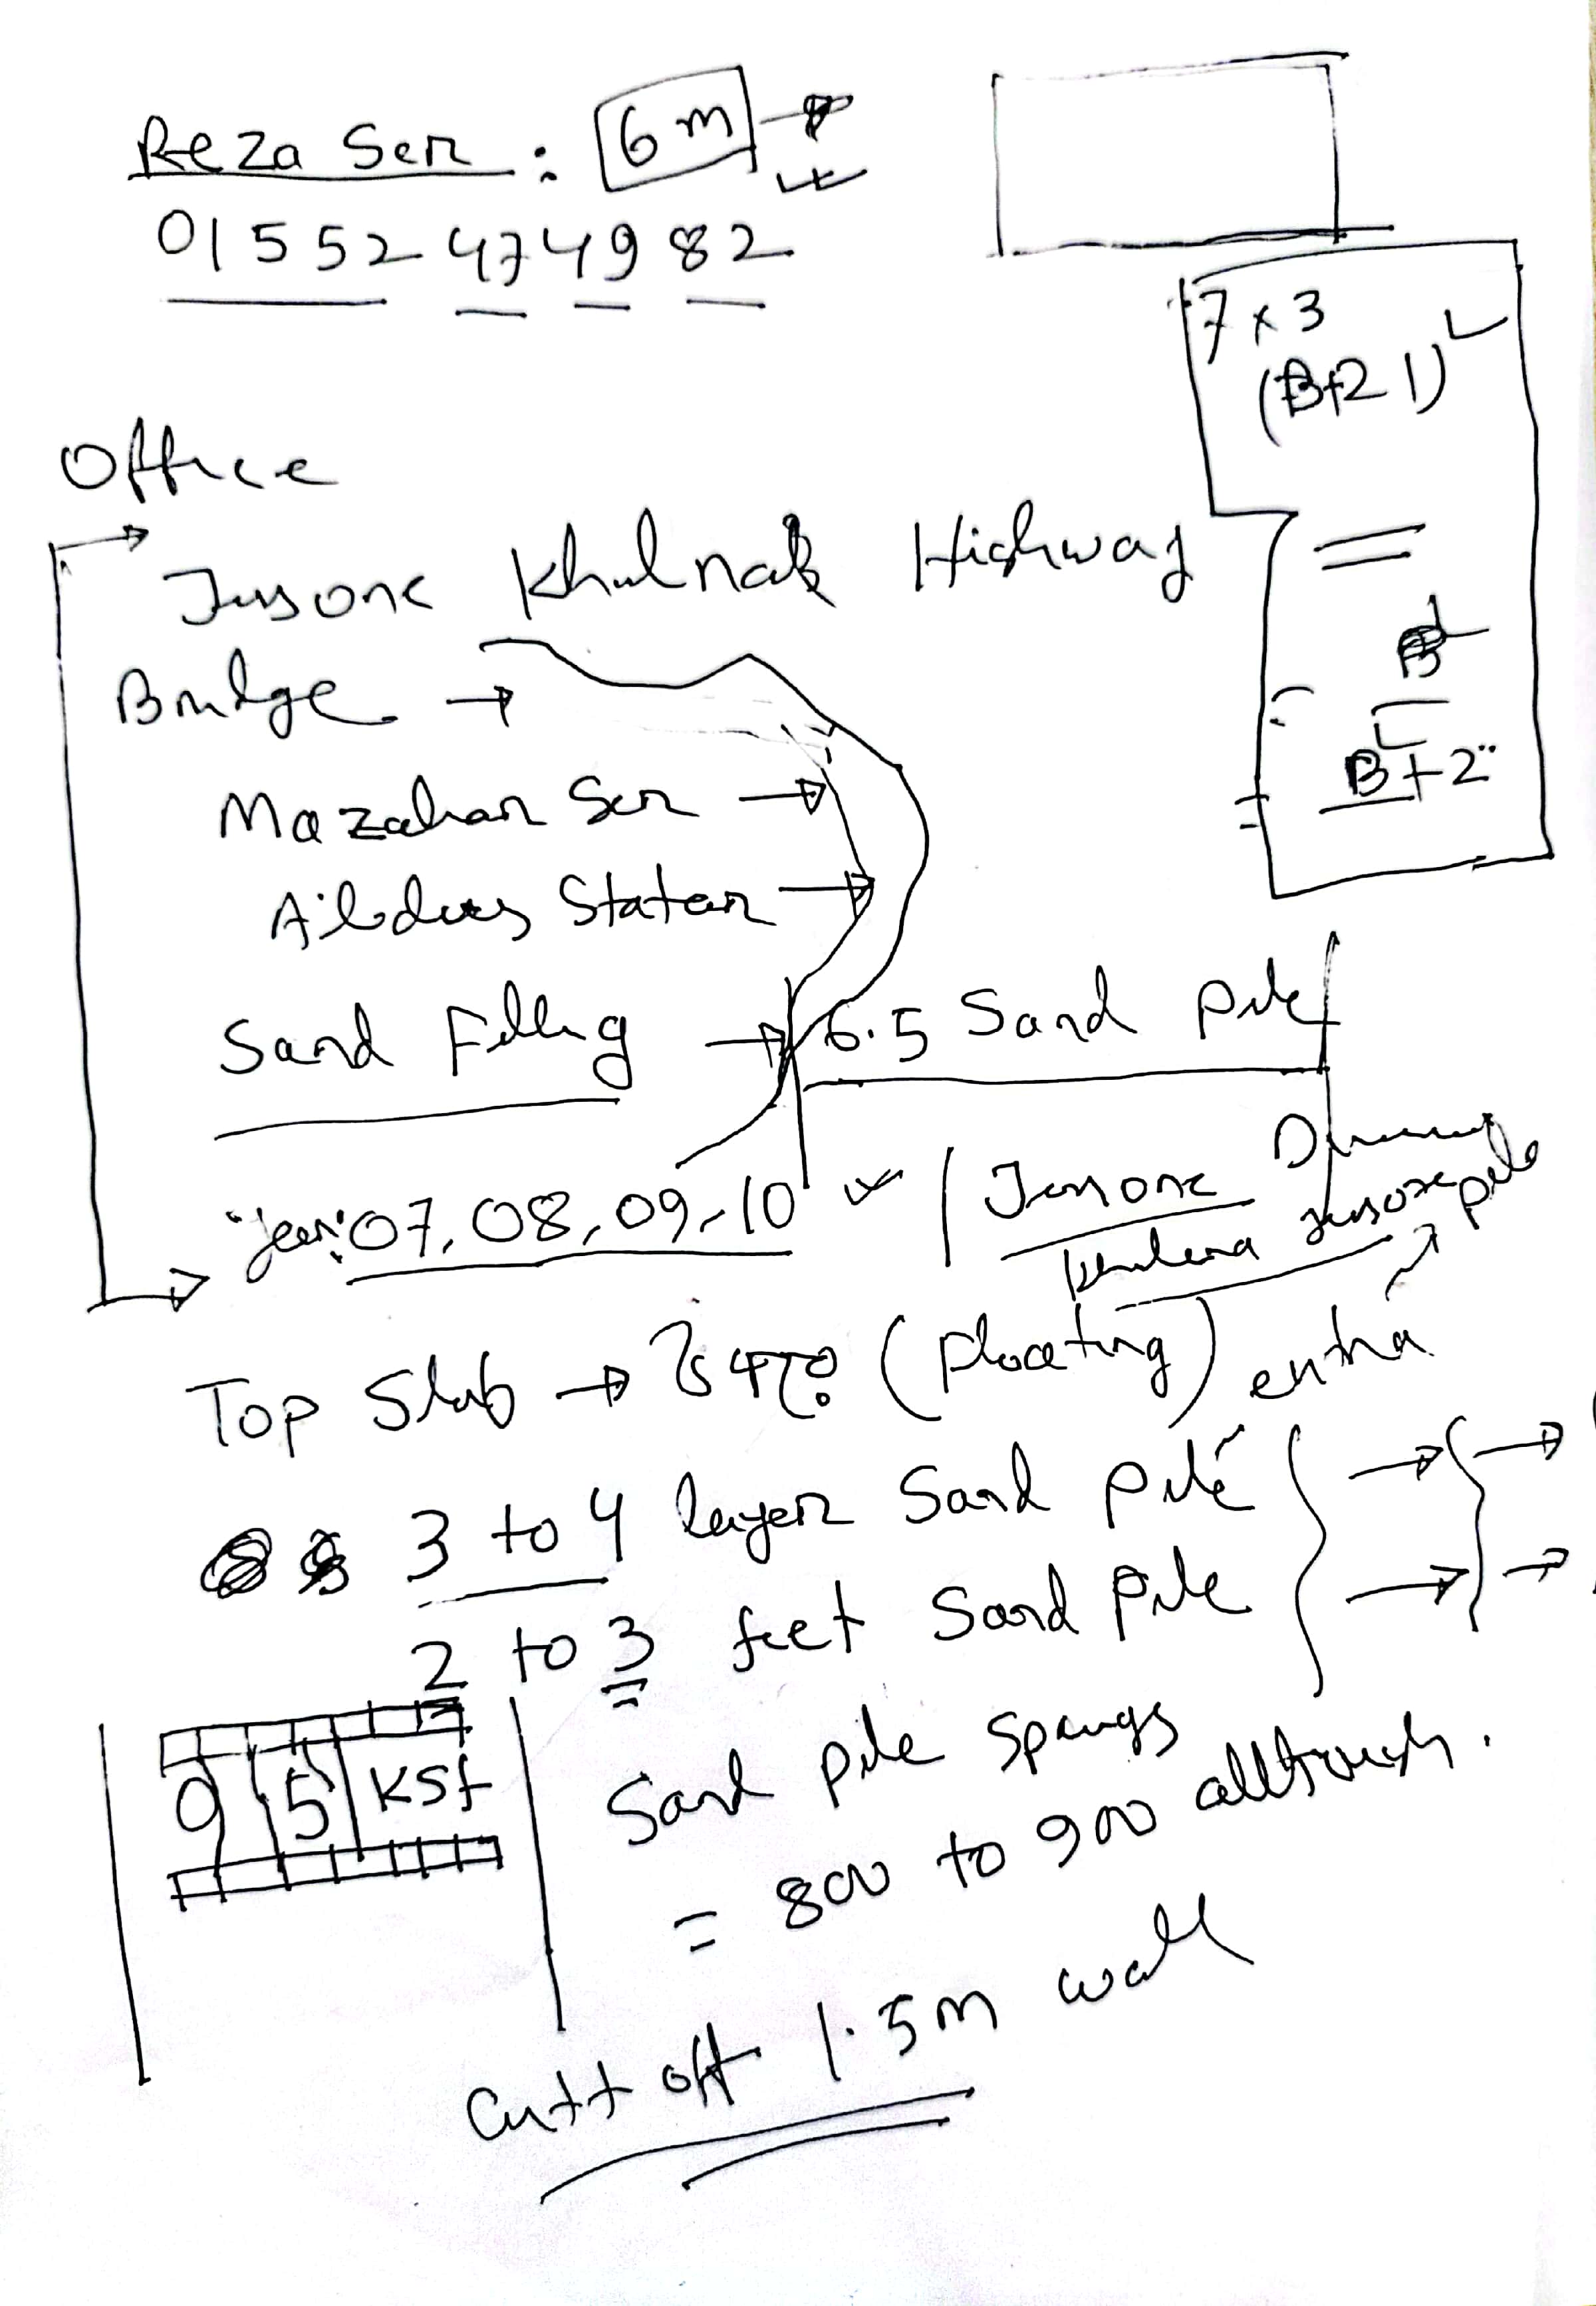 Reza Ser : 6m
01552 474982
7 x 3
(B+2 1)
Office
Jessore Khulnak Highway
=
Bridge
B+2"
Mazahar Ser
Sand Filling
6.5 Sand pile
year: 07, 08, 09, 10
Jessore
khulna
Jessore pile
Top Slab
(floating) extra
3 to 4 layer Sand pile
2 to 3 feet Sand Pile
0 5 KSf
Sand pile
= 800 to 900 allthrough.
Cutt off 1.5m wall